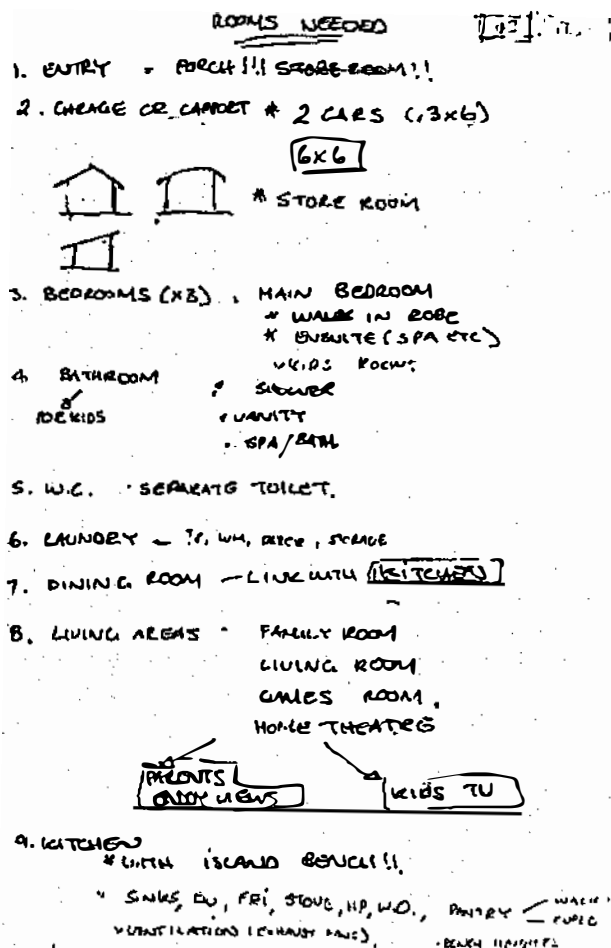 ROOMS NEEDED
1. ENTRY - PORCH!!! STORE ROOM!!
2. GARAGE OR CARPORT * 2 CARS (.3x6)
6x6
* STORE ROOM
3. BEDROOMS (x3) . MAIN BEDROOM
* WALK IN ROBE
* ENSUITE (SPA ETC)
KIDS ROOMS
4. BATHROOM • SHOWER
FOR KIDS • VANITY
• SPA/BATH
5. W.C. • SEPARATE TOILET.
6. LAUNDRY - WM, DRYER, STORAGE
7. DINING ROOM - LINK WITH KITCHEN
8. LIVING AREAS - FAMILY ROOM
LIVING ROOM
GAMES ROOM.
HOME THEATRE
PARENTS
ENJOY VIEWS
KIDS TV
9. KITCHEN
* WITH ISLAND BENCH!!
* SINKS, DW, FRI, STOVE, HP, W.O., PANTRY
VENTILATION (EXHAUST FANS) • BENCH HEIGHTS